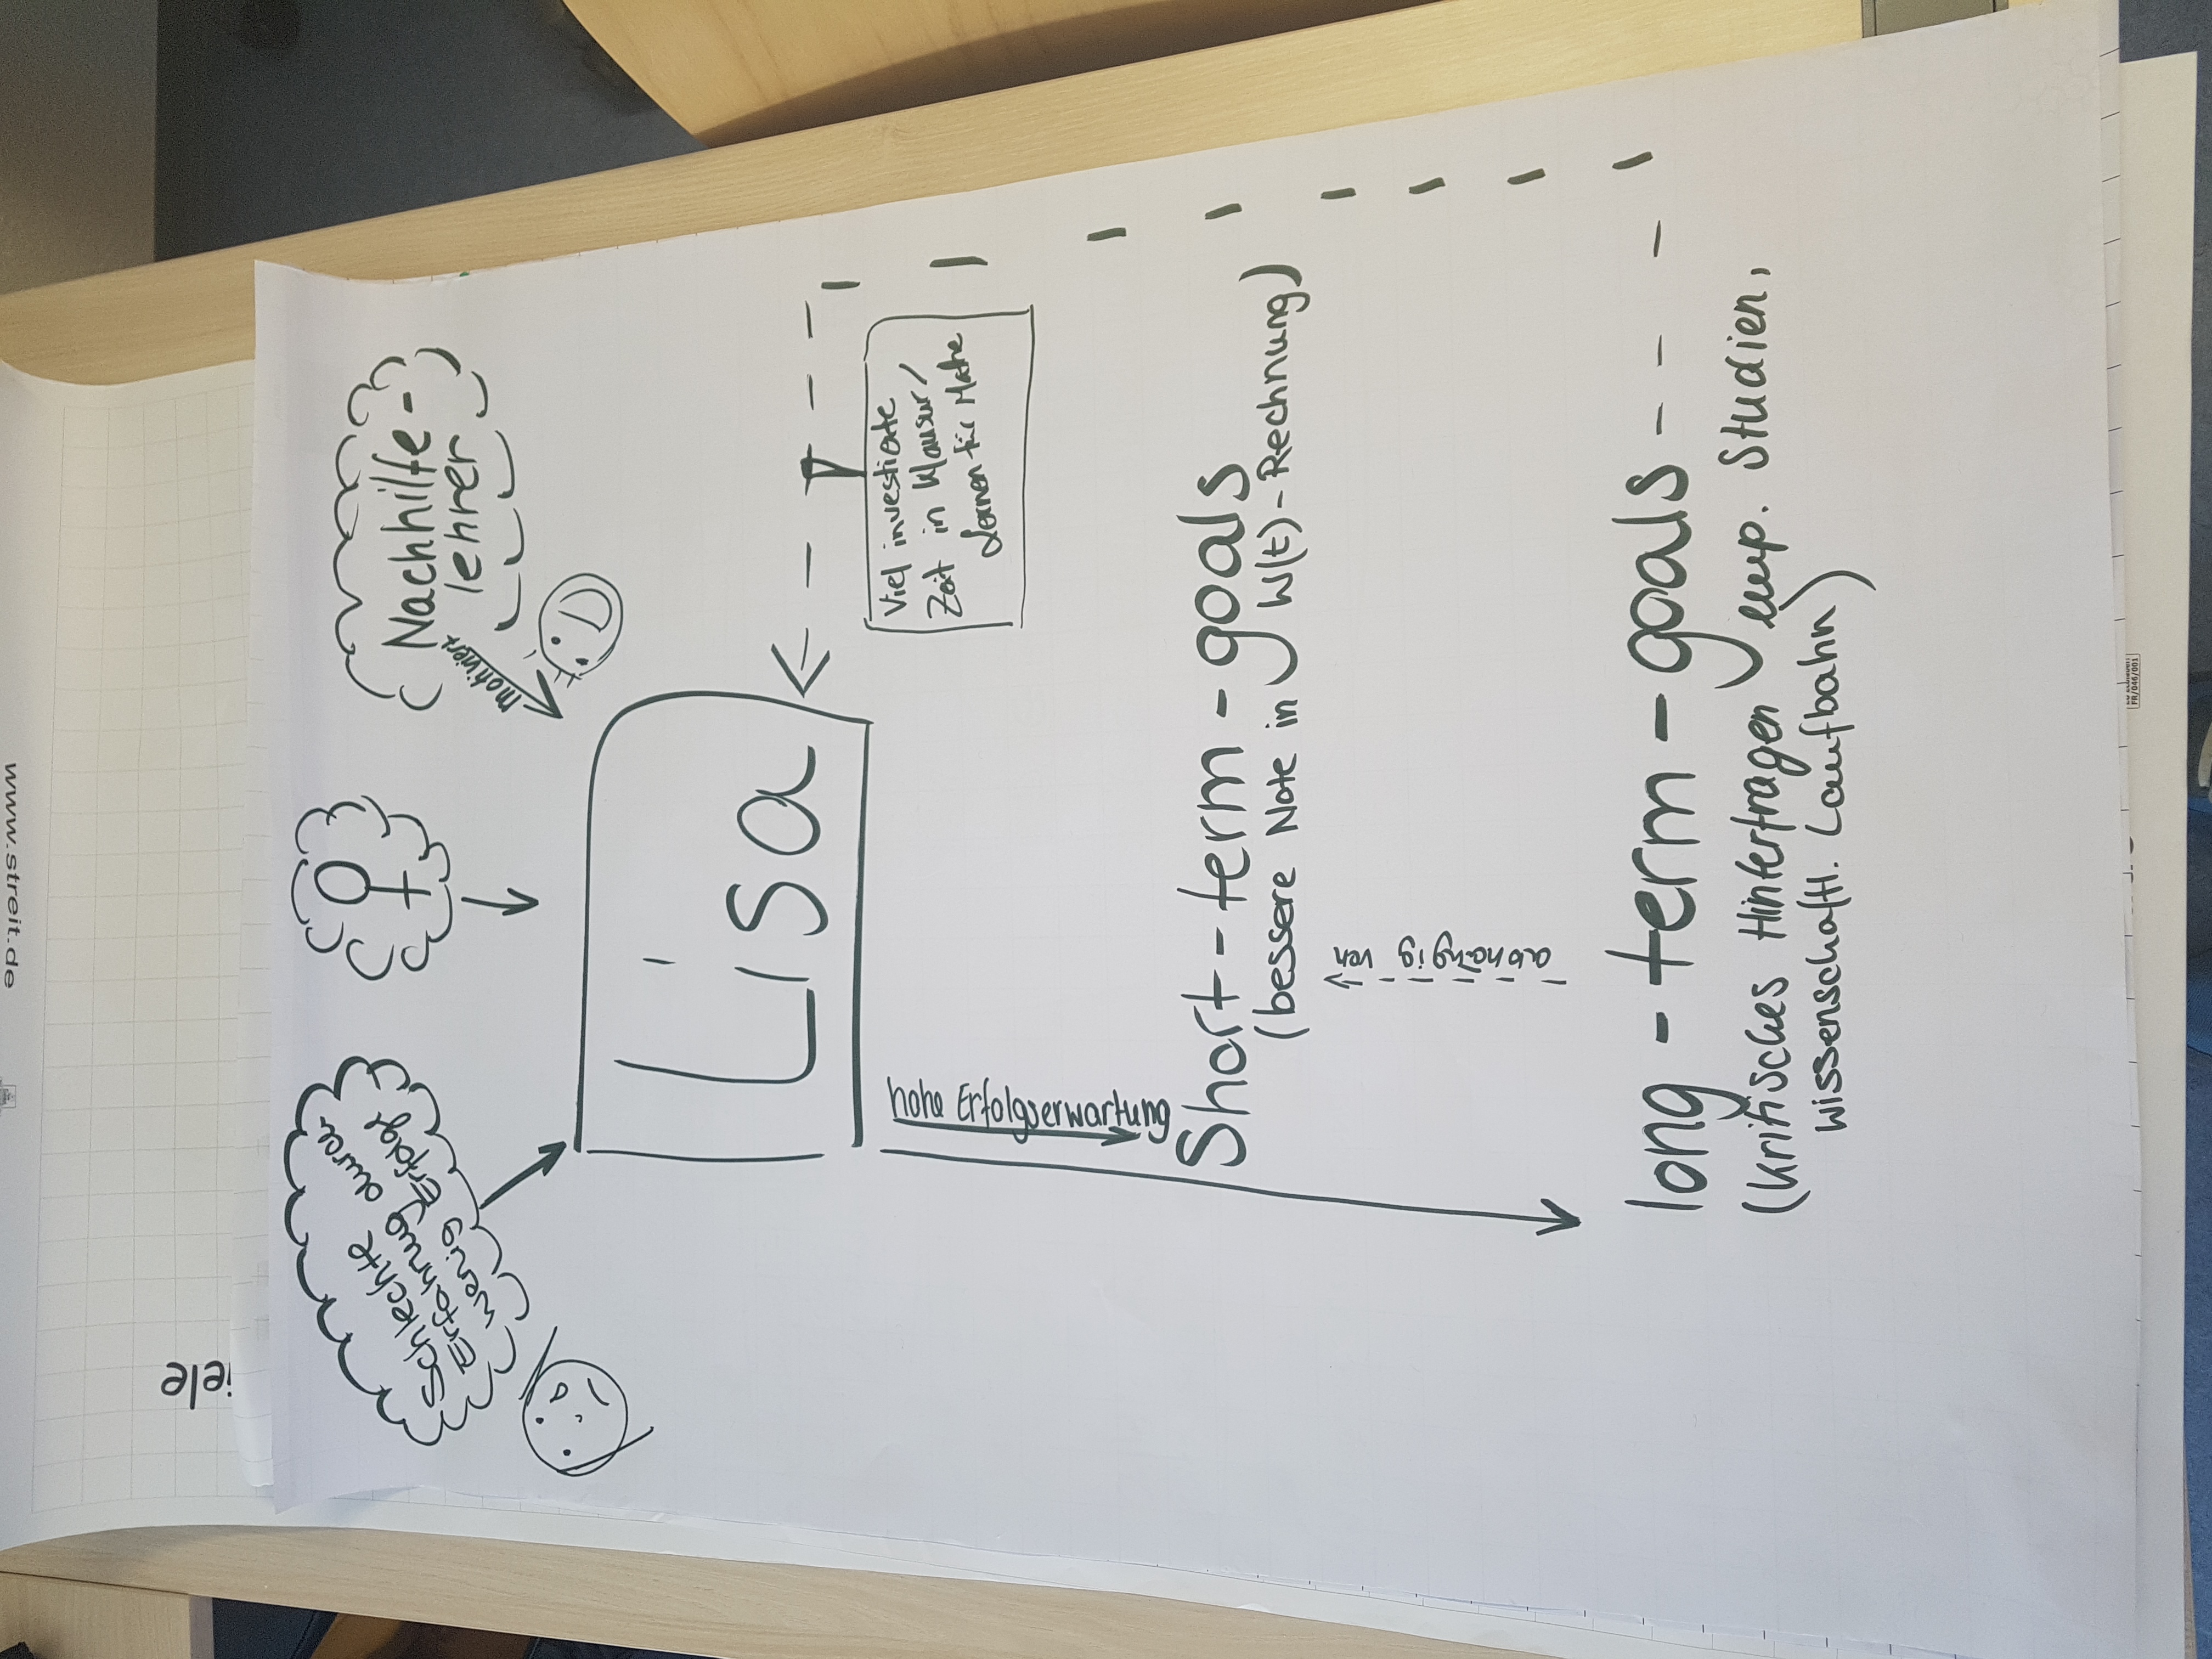 www.streit.de
iele
Schlechte
Erfahrung durch
wenig Erfolge
Nachhilfe-
lehrer
motiviert
Lisa
Viel investierte
Zeit in Klausur/
Lernen für Mathe
hohe Erfolgserwartung
Short-term-goals
(bessere Note in W(t)-Rechnung)
abhängig von
long-term-goals
(kritisches Hinterfragen emp. Studien,
wissenschaftl. Laufbahn)
FR/046/001